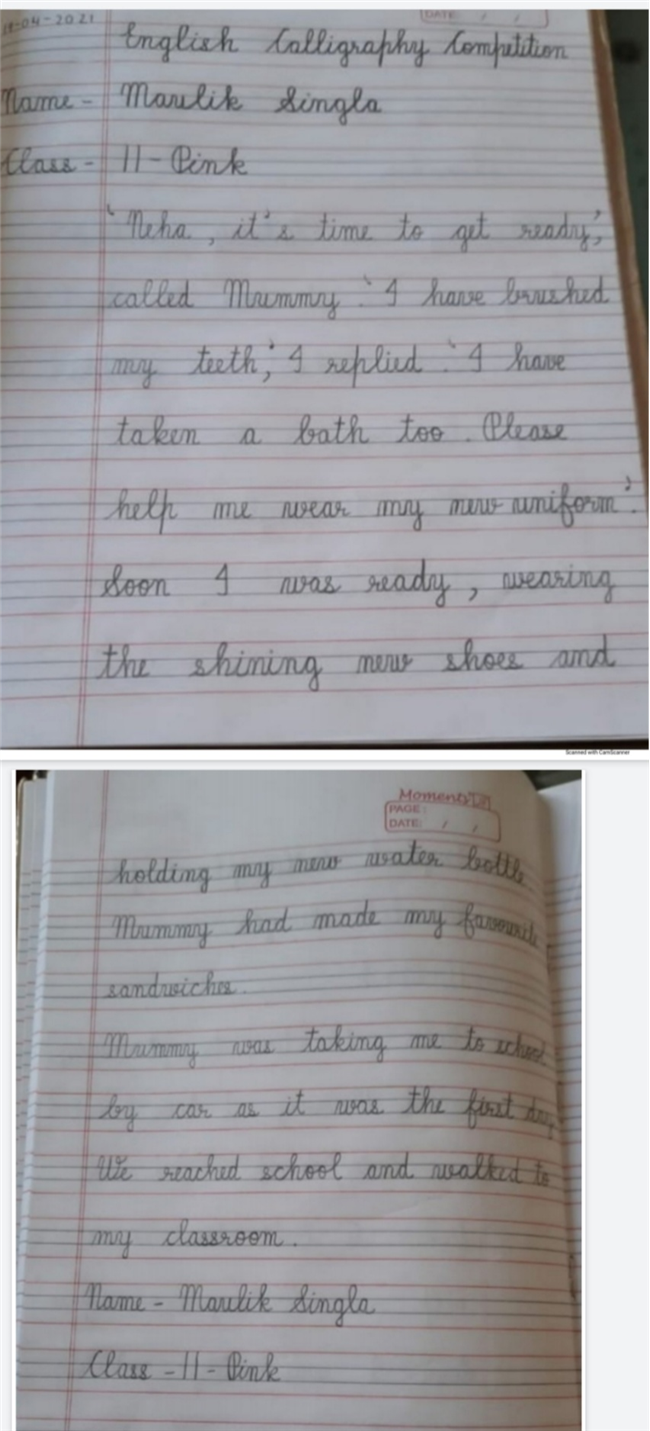 19-04-2021
DATE: / /
English Calligraphy Competition
Name - Maulik Singla
Class - II - Pink
'Neha, it's time to get ready',
called Mummy. 'I have brushed
my teeth,' I replied. 'I have
taken a bath too. Please
help me wear my new uniform'.
Soon I was ready, wearing
the shining new shoes and
Scanned with CamScanner
Moments
PAGE:
DATE: / /
holding my new water bottle
Mummy had made my favourite
sandwiches.
Mummy was taking me to school
by car as it was the first day
We reached school and walked to
my classroom.
Name - Maulik Singla
Class - II - Pink